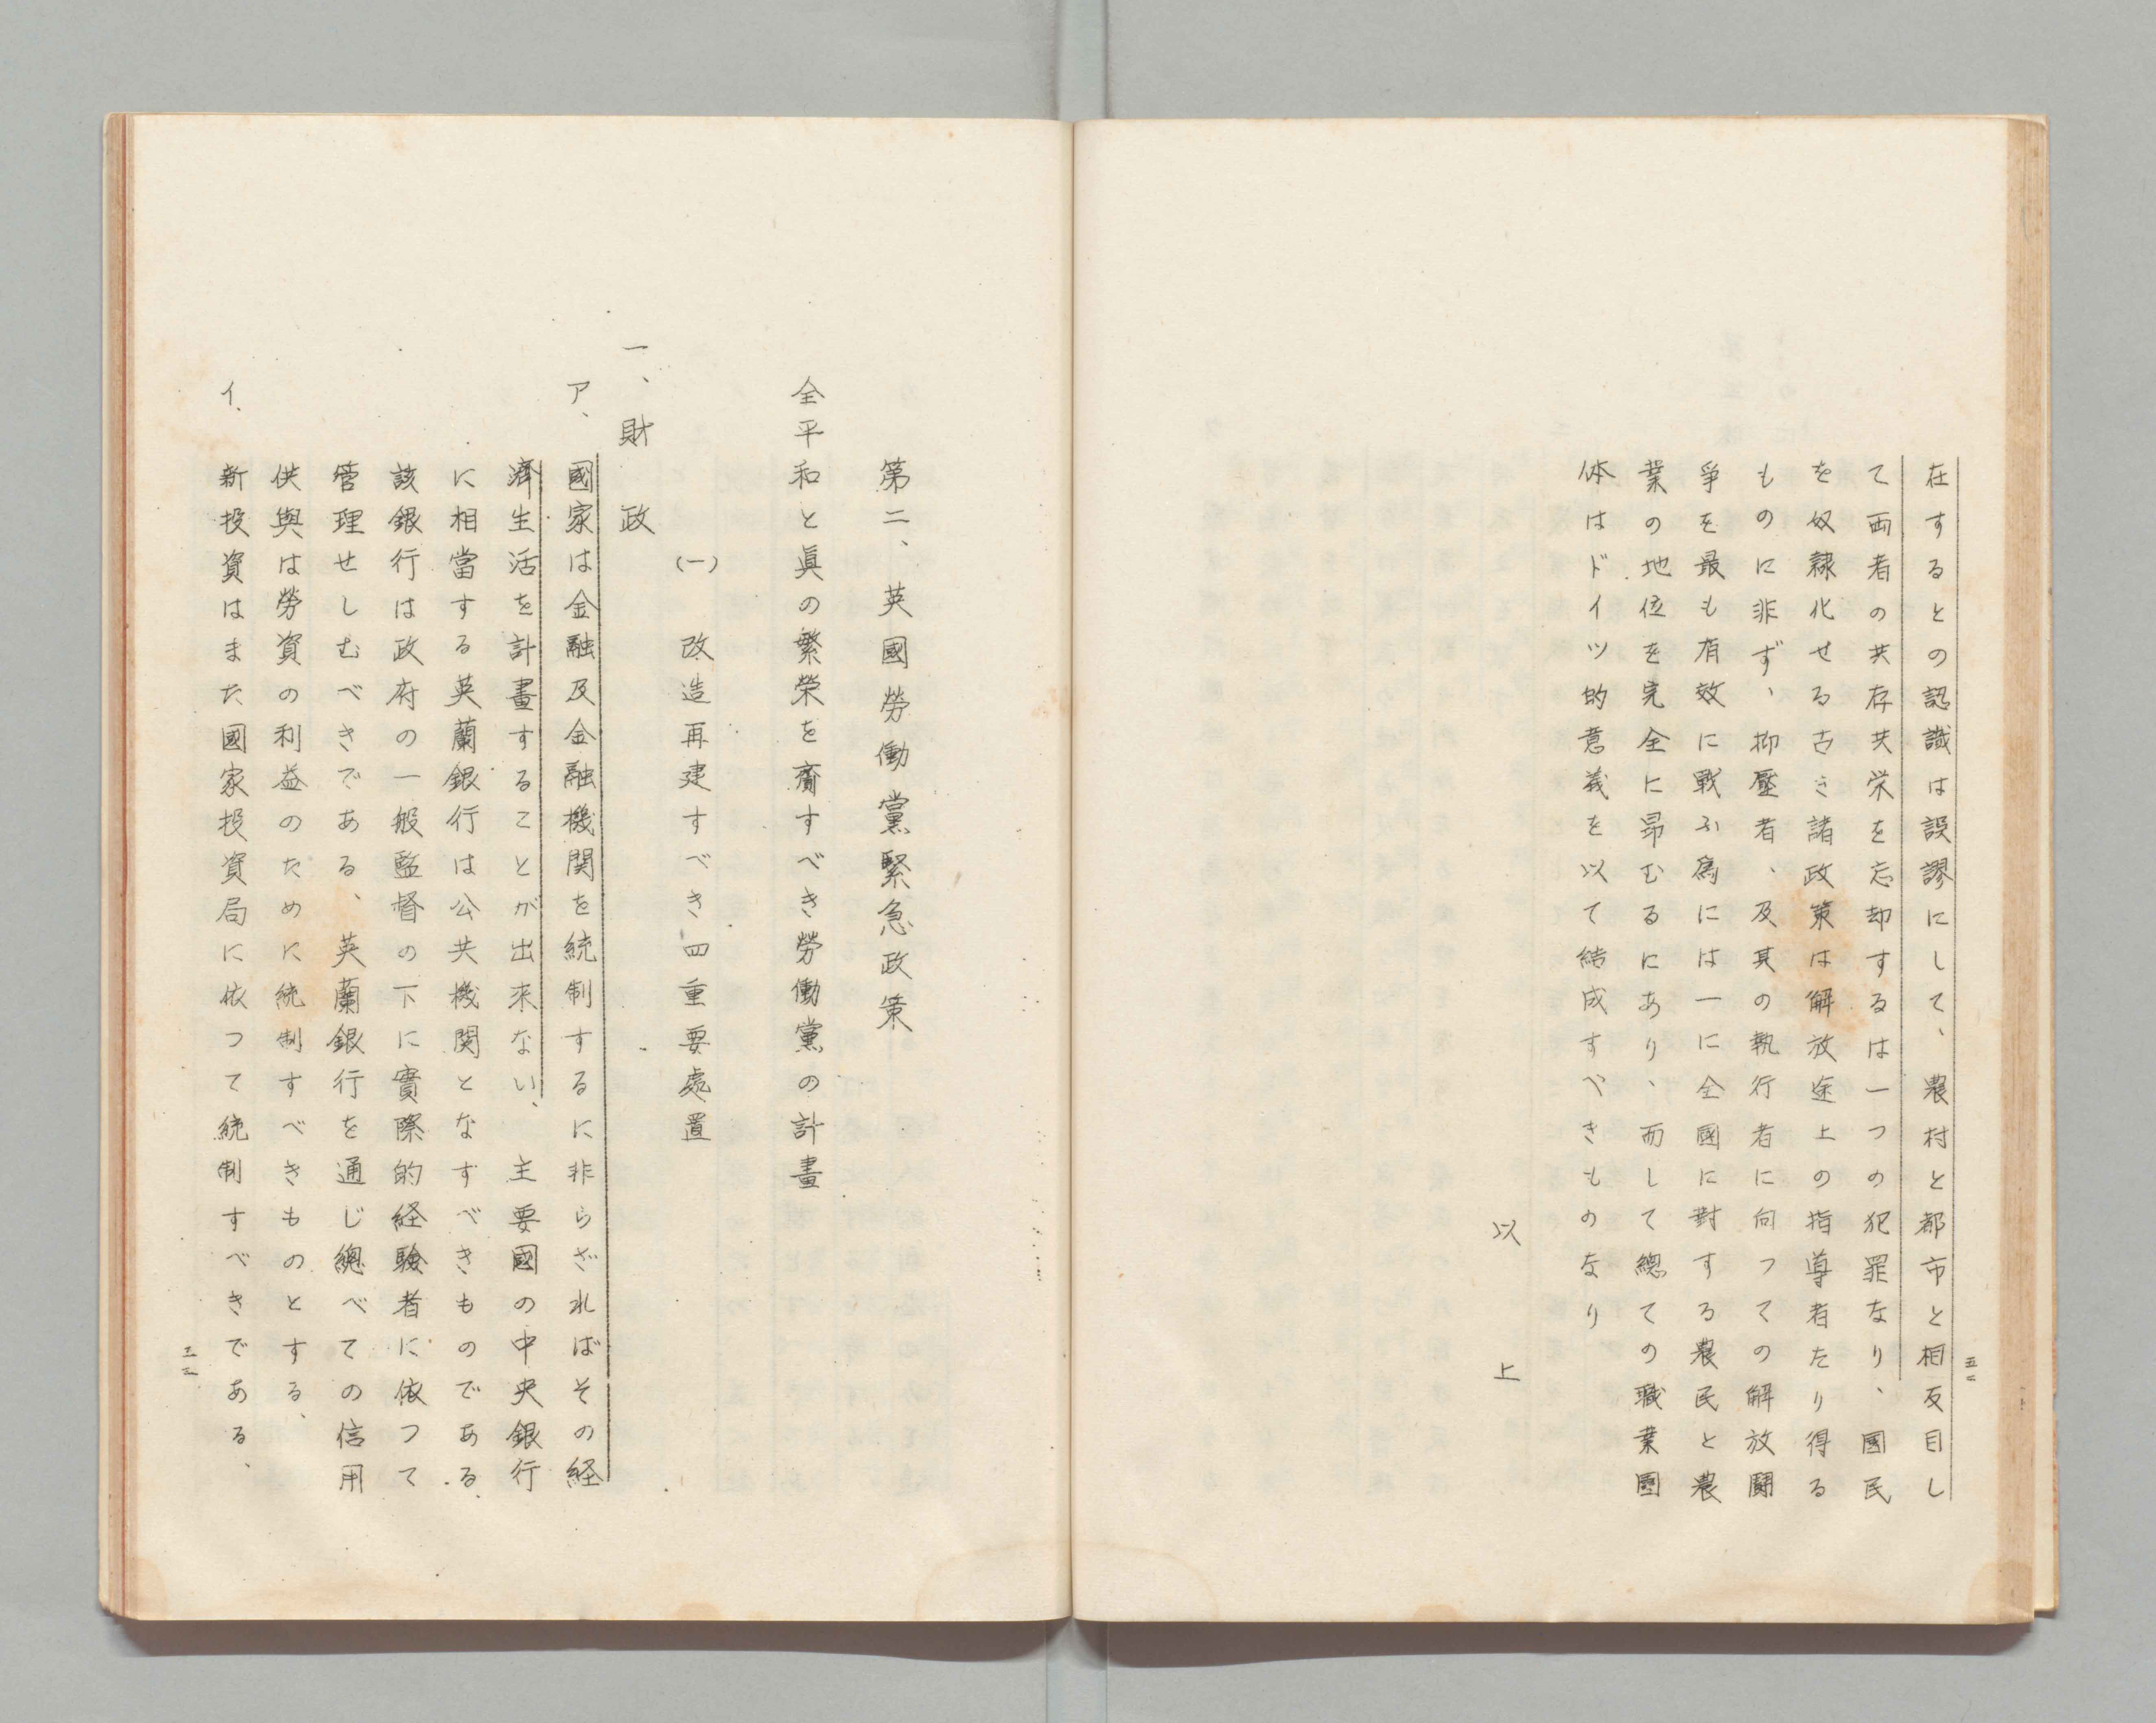 在するとの認識は誤謬にして、農村と都市と相反目し
て両者の共存共栄を忘却するは一つの犯罪なり、國民
を奴隷化せる古き諸政策は解放途上の指導者たり得る
ものに非ず、抑壓者、及其の執行者に向つての解放鬪
爭を最も有效に戰ふ爲には一に全國に對する農民と農
業の地位を完全に昂むるにあり、而して總ての職業團
体はドイツ的意義を以て結成すべきものなり
以上
第二、英國勞働黨緊急政策
全平和と眞の繁榮を齎すべき勞働黨の計畫
(一) 改造再建すべき四重要處置
一、財政
ア、國家は金融及金融機関を統制するに非らざればその経
濟生活を計畫することが出来ない、主要國の中央銀行
に相當する英蘭銀行は公共機関となすべきものである
該銀行は政府の一般監督の下に實際的経験者に依つて
管理せしむべきである、英蘭銀行を通じ總べての信用
供與は勞資の利益のために統制すべきものとする、
イ、新投資はまた國家投資局に依つて統制すべきである、